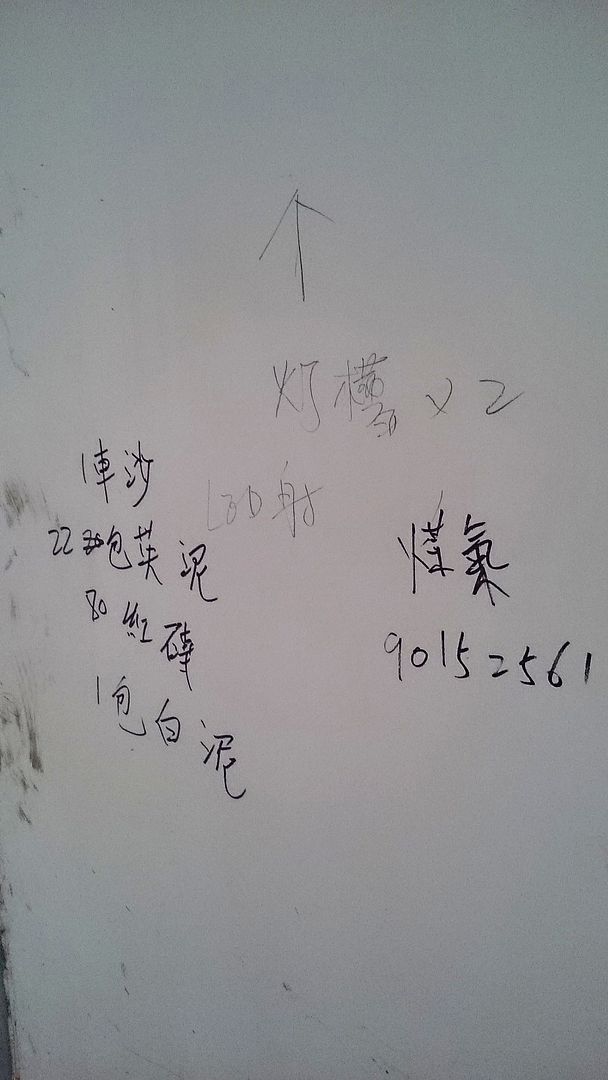 ↑
灯槽 x 2
LED射
1車沙
22包英泥
80紅磚
1包白泥
煤氣
90152561